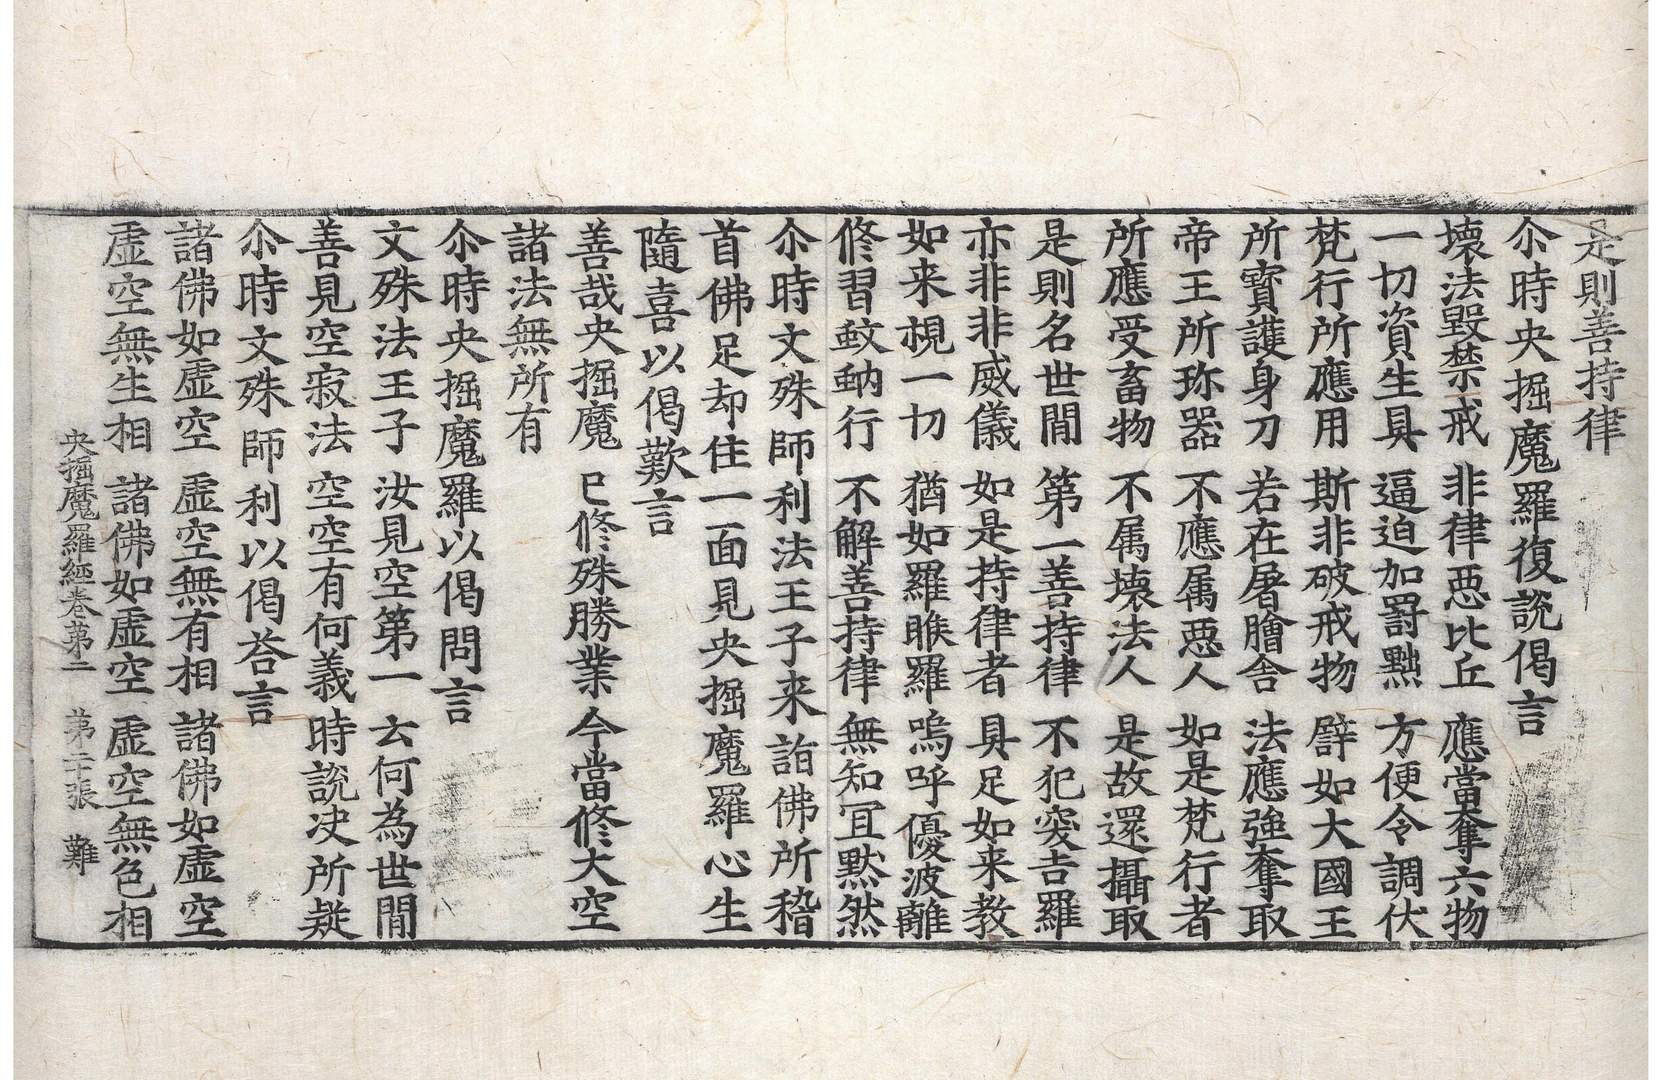 是則善持律
尒時央掘魔羅復說偈言
壞法毀禁戒 非律惡比丘 應當奪六物
一切資生具 逼迫加罸黜 方便令調伏
梵行所應用 斯非破戒物 譬如大國王
所寶護身刀 若在屠膾舍 法應強奪取
帝王所珎器 不應属惡人 如是梵行者
所應受畜物 不属壞法人 是故還攝取
是則名世間 第一善持律 不犯突吉羅
亦非非威儀 如是持律者 具足如来教
如来視一切 猶如羅睺羅 嗚呼優波離
修習蚊蚋行 不解善持律 無知冝黙然
尒時文殊師利法王子来詣佛所稽
首佛足却住一面見央掘魔羅心生
隨喜以偈歎言
善哉央掘魔 已修殊勝業 今當修大空
諸法無所有
尒時央掘魔羅以偈問言
文殊法王子 汝見空第一 云何為世間
善見空寂法 空空有何義 時說决所疑
尒時文殊師利以偈荅言
諸佛如虛空 虛空無有相 諸佛如虛空
虛空無生相 諸佛如虛空 虛空無色相
央掘魔羅經卷第二 第二十張 難